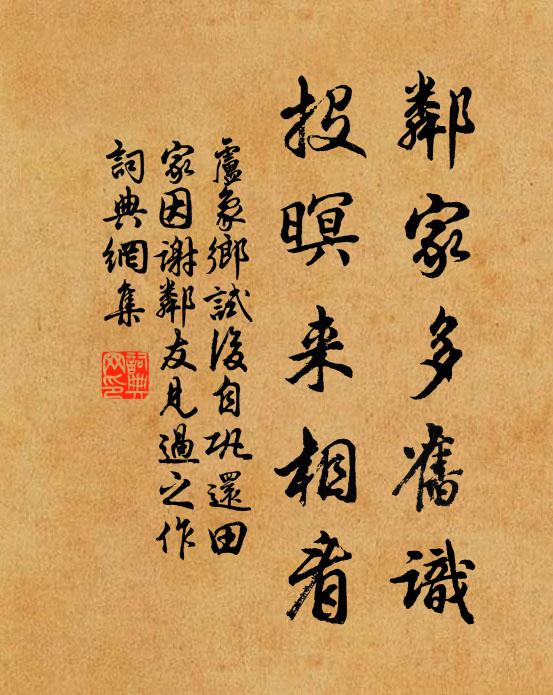 鄰家多舊識
投暝来相看
盧象鄉試後自巩還田
家因谢鄰友見過之作
詞典網集
詞典
网印